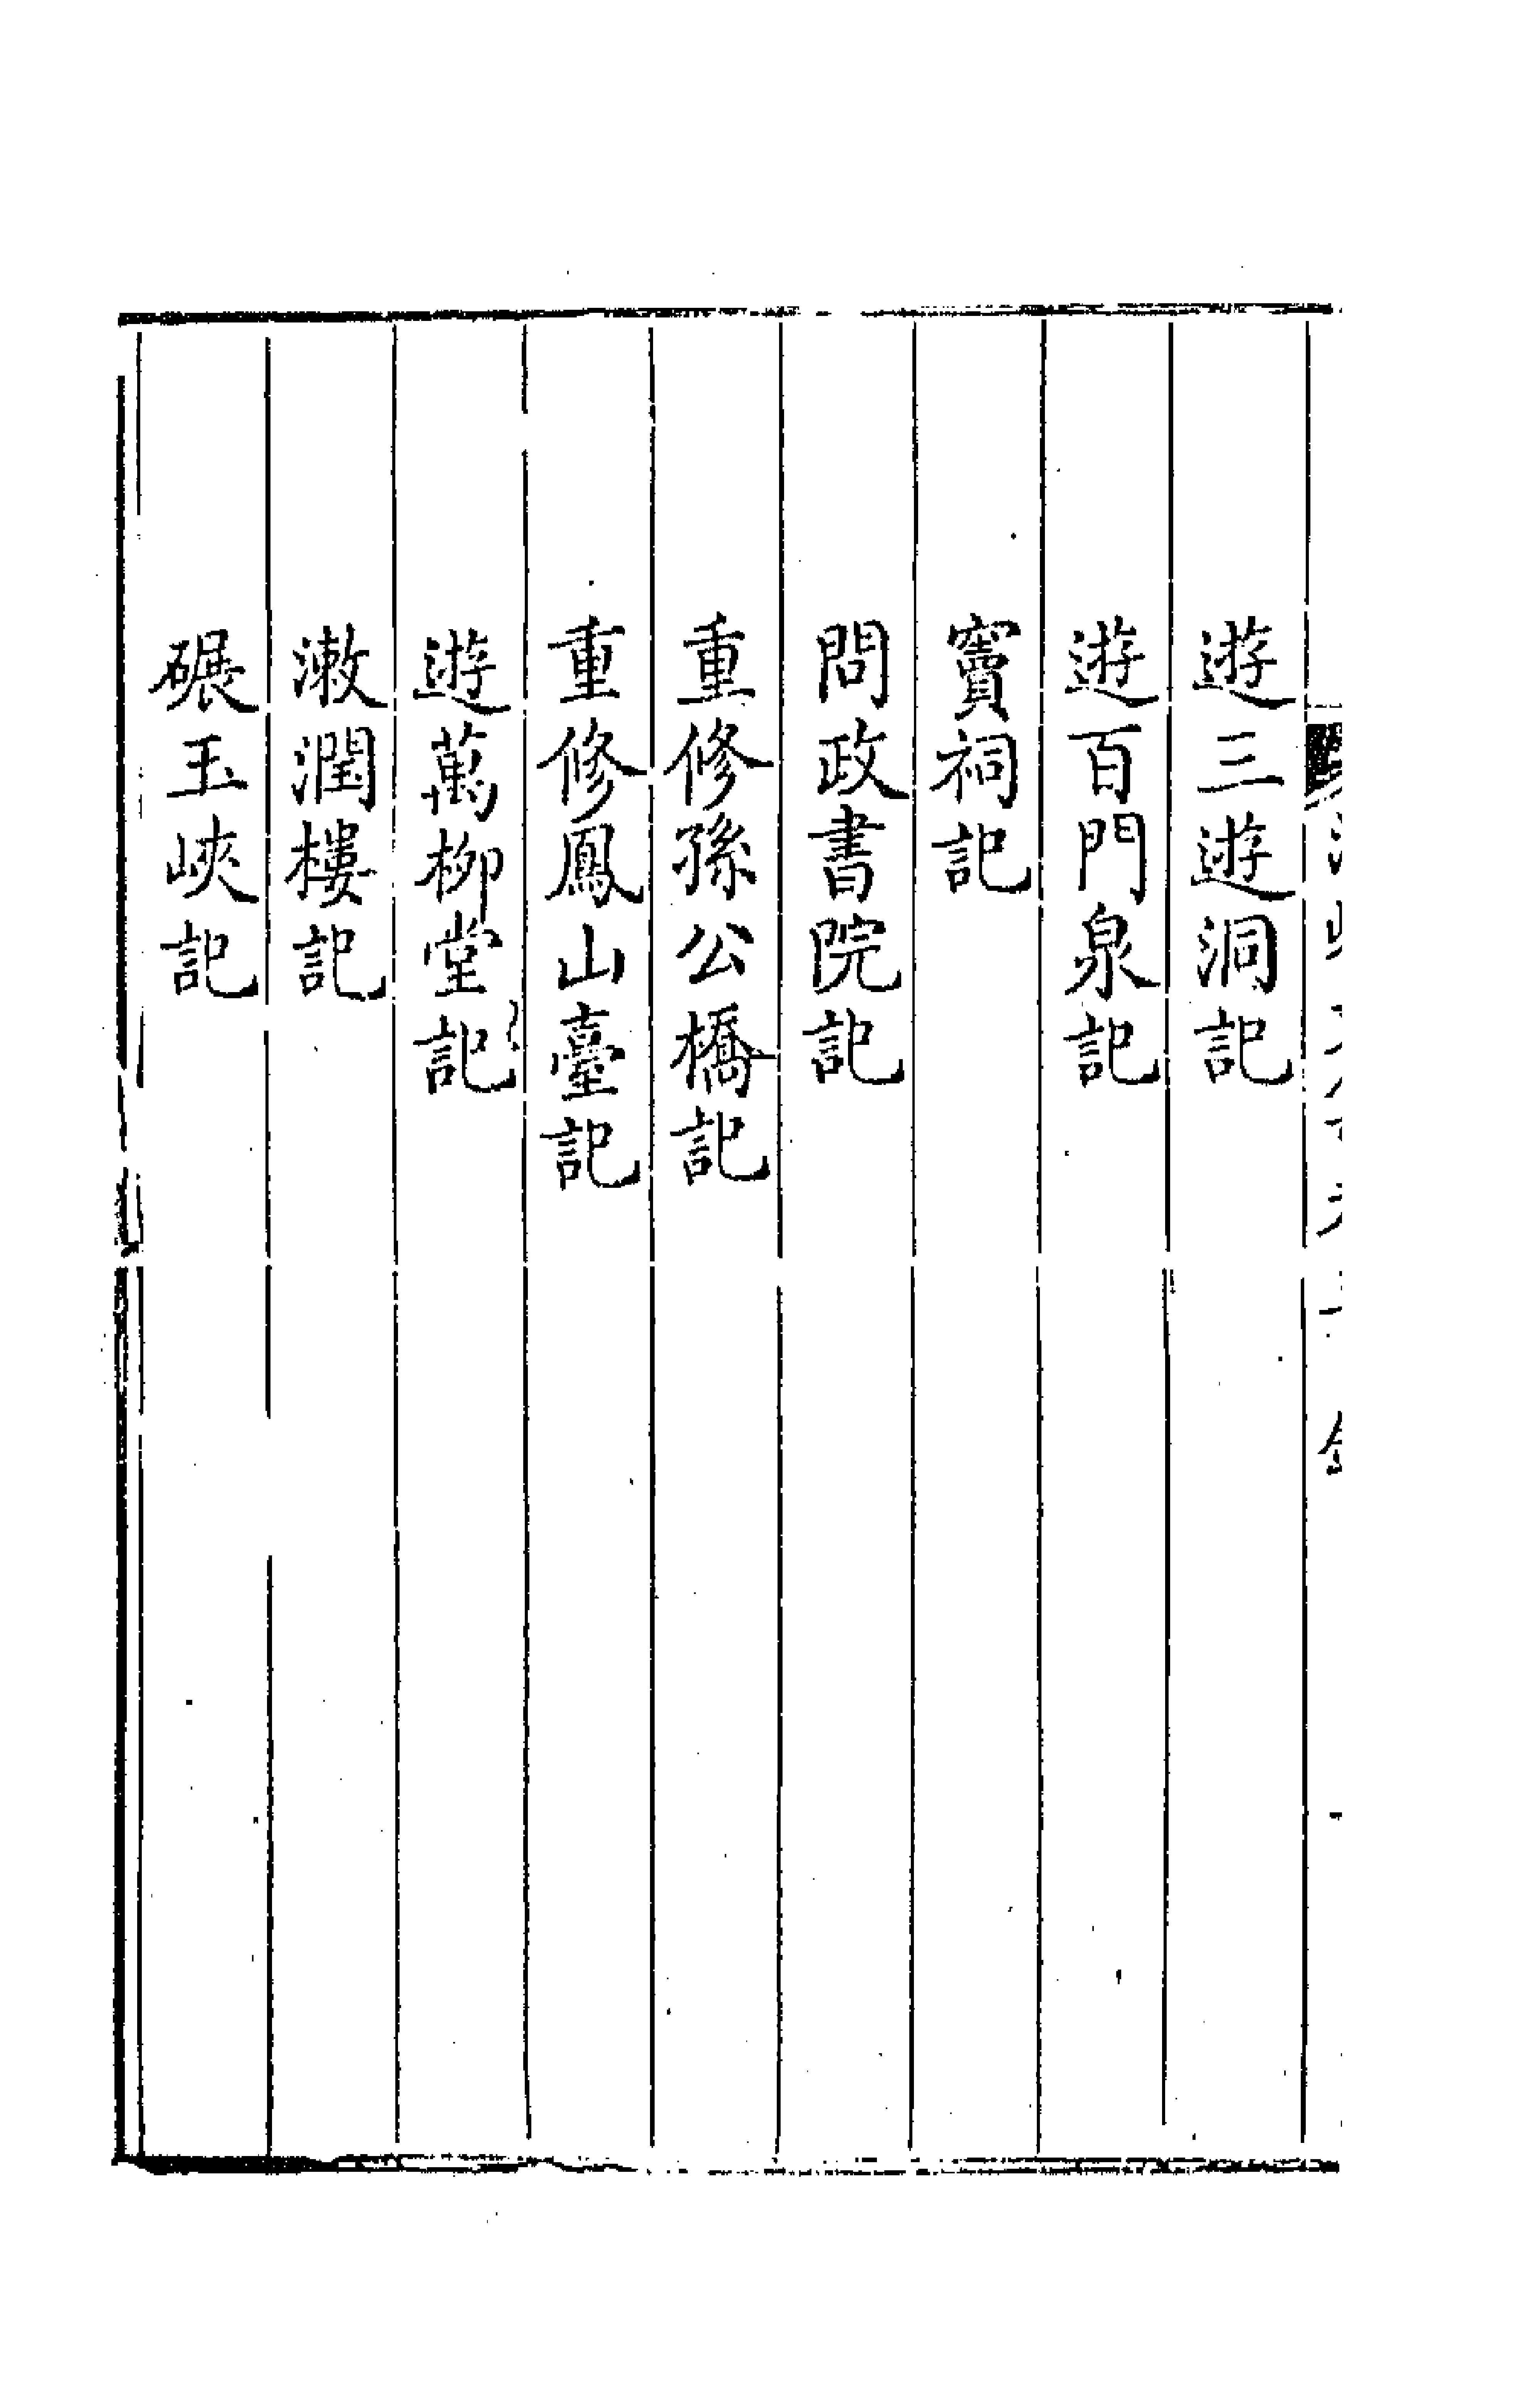 遊三遊洞記
遊百門泉記
竇祠記
問政書院記
重修孫公橋記
重修鳳山臺記
遊萬柳堂記
漱潤樓記
碾玉峽記